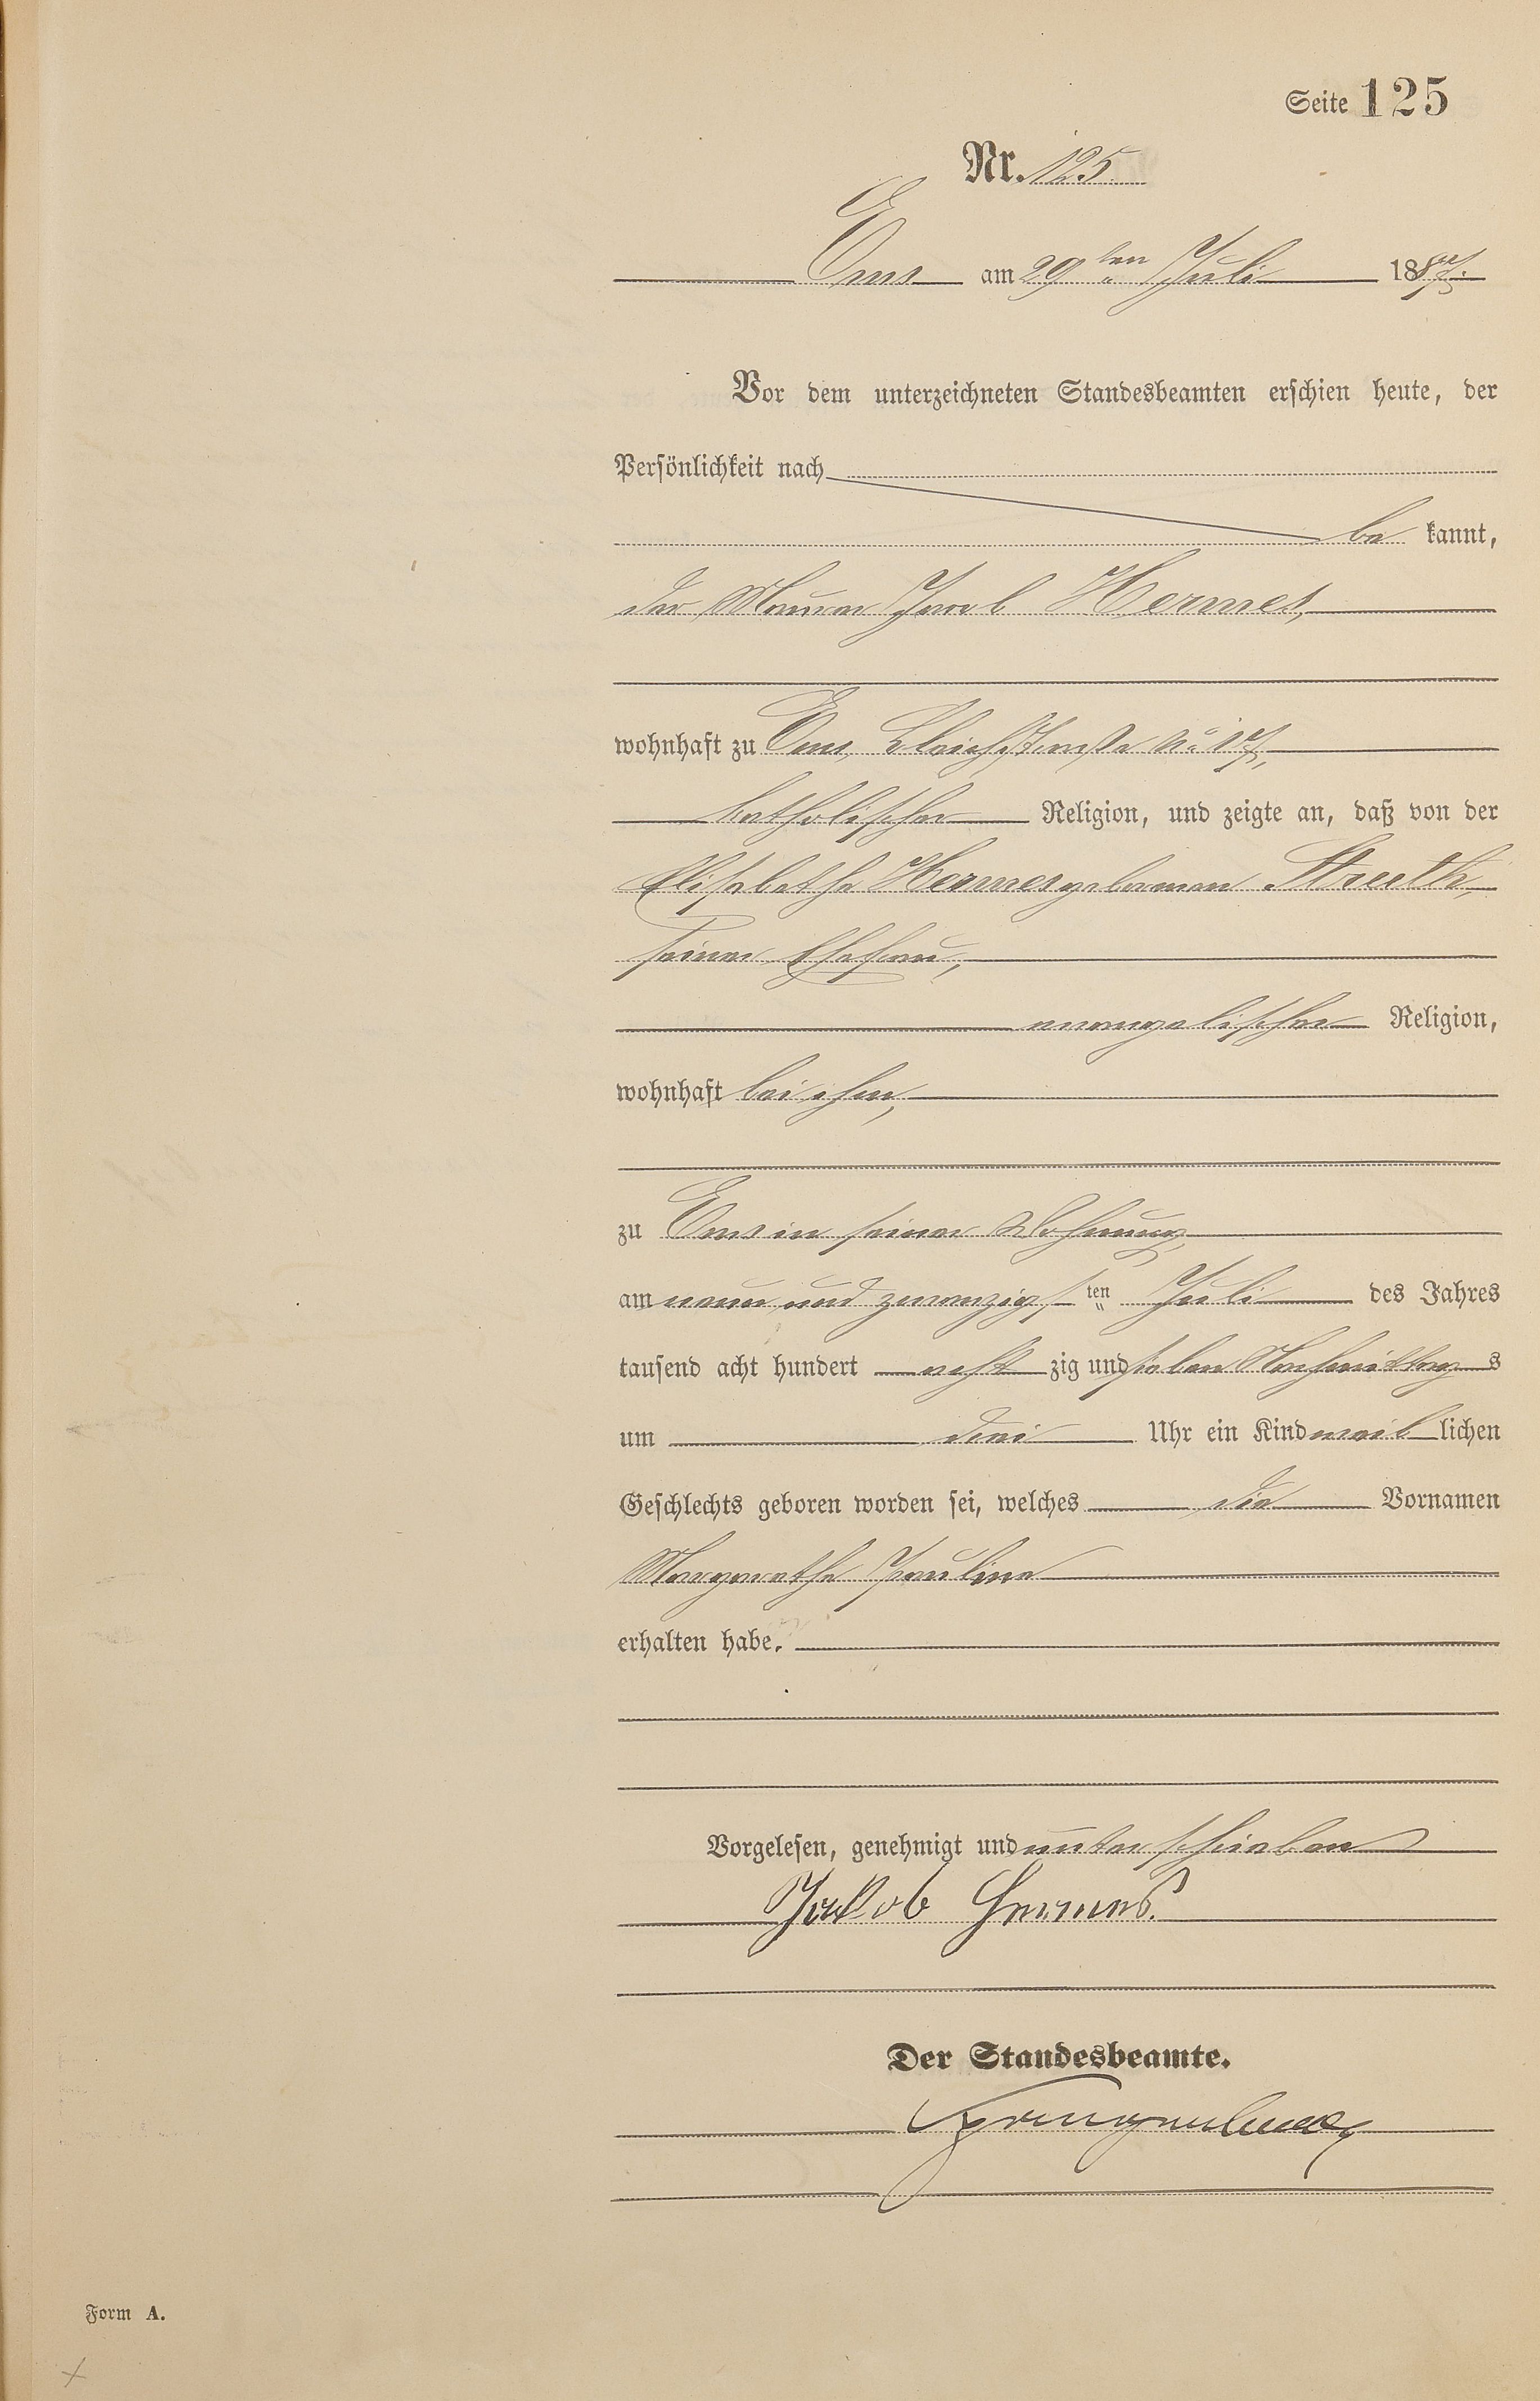 Seite 125
Nr. 125
Ems am 29ten Juli 1887.
Vor dem unterzeichneten Standesbeamten erschien heute, der
Persönlichkeit nach
be kannt,
der Maurer Jacob Hermes,
wohnhaft zu Ems, Bleichstraße No 17,
katholischer Religion, und zeigte an, daß von der
Elisabethe Hermes geborenen Strueth,
seiner Ehefrau,
evangelischer Religion,
wohnhaft bei ihm,
zu Ems in seiner Wohnung,
am neun und zwanzigs ten Juli des Jahres
tausend acht hundert acht zig und sieben Nachmittag s
um drei Uhr ein Kind weib lichen
Geschlechts geboren worden sei, welches die Vornamen
Margarethe Pauline
erhalten habe.
Vorgelesen, genehmigt und unterschrieben
Jakob Hermes.
Der Standesbeamte.
Form A.